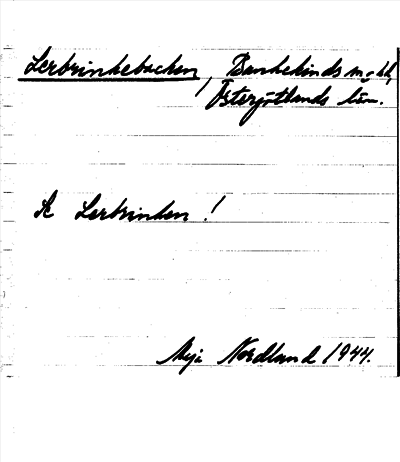 Lerbrinkebacken, Bankekinds sn o. hd,
Östergötlands län.
Se Lerbrinken!
Maja Nordland 1944.